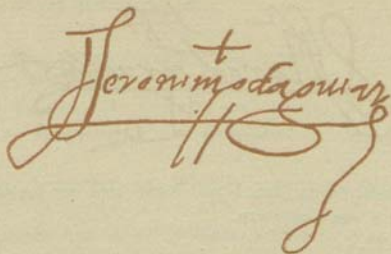 Jeronimo daguilar